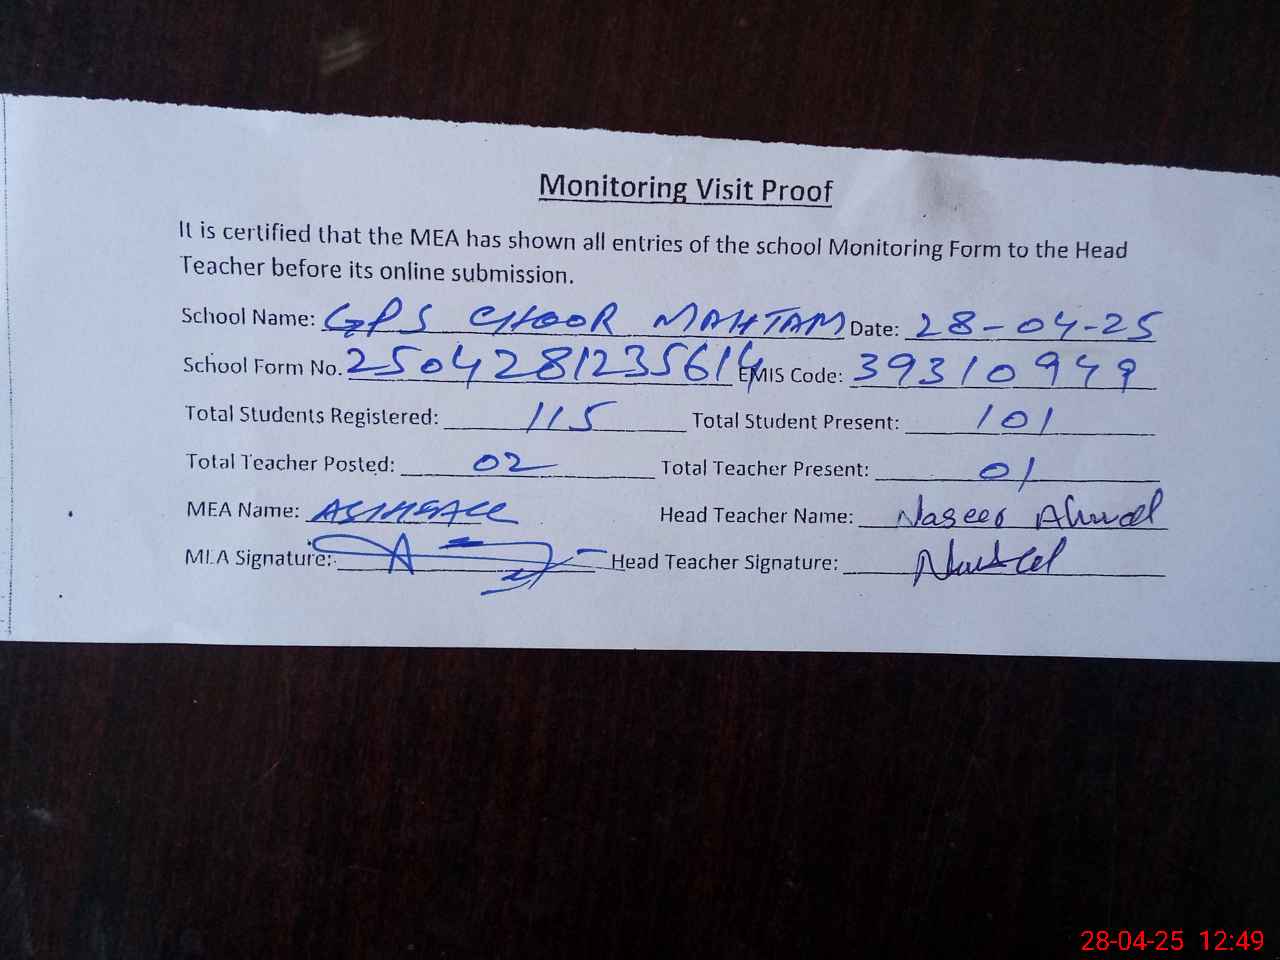 Monitoring Visit Proof
It is certified that the MEA has shown all entries of the school Monitoring Form to the Head
Teacher before its online submission.
School Name: GPS CHOOR MAHTAM Date: 28-04-25
School Form No. 2504281235614 EMIS Code: 39310949
Total Students Registered: 115 Total Student Present: 101
Total Teacher Posted: 02 Total Teacher Present: 01
MEA Name: Head Teacher Name: Naseer Ahmad
MEA Signature: Head Teacher Signature:
28-04-25 12:49